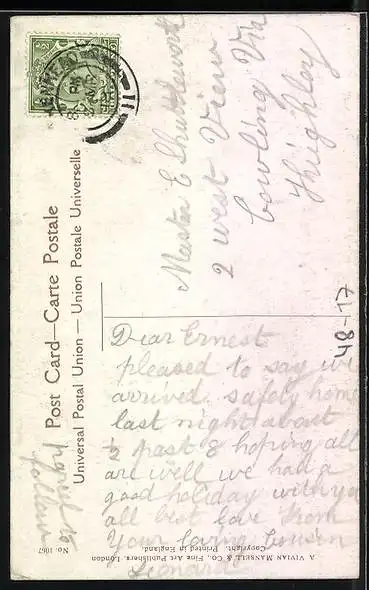 Post Card—Carte Postale
Universal Postal Union — Union Postale Universelle
Master E Shuttleworth
2 West View
Bowling Via
Keighley
48-17
Dear Ernest
pleased to say we
arrived safely home
last night about
½ past 8 hoping all
are well we had a
good holiday with you
all best love from
Your loving Cousin
Leonard
to
follow
A VIVIAN MANSELL & CO., Fine Art Publishers, London
Copyright. Printed in England.
No. 1067